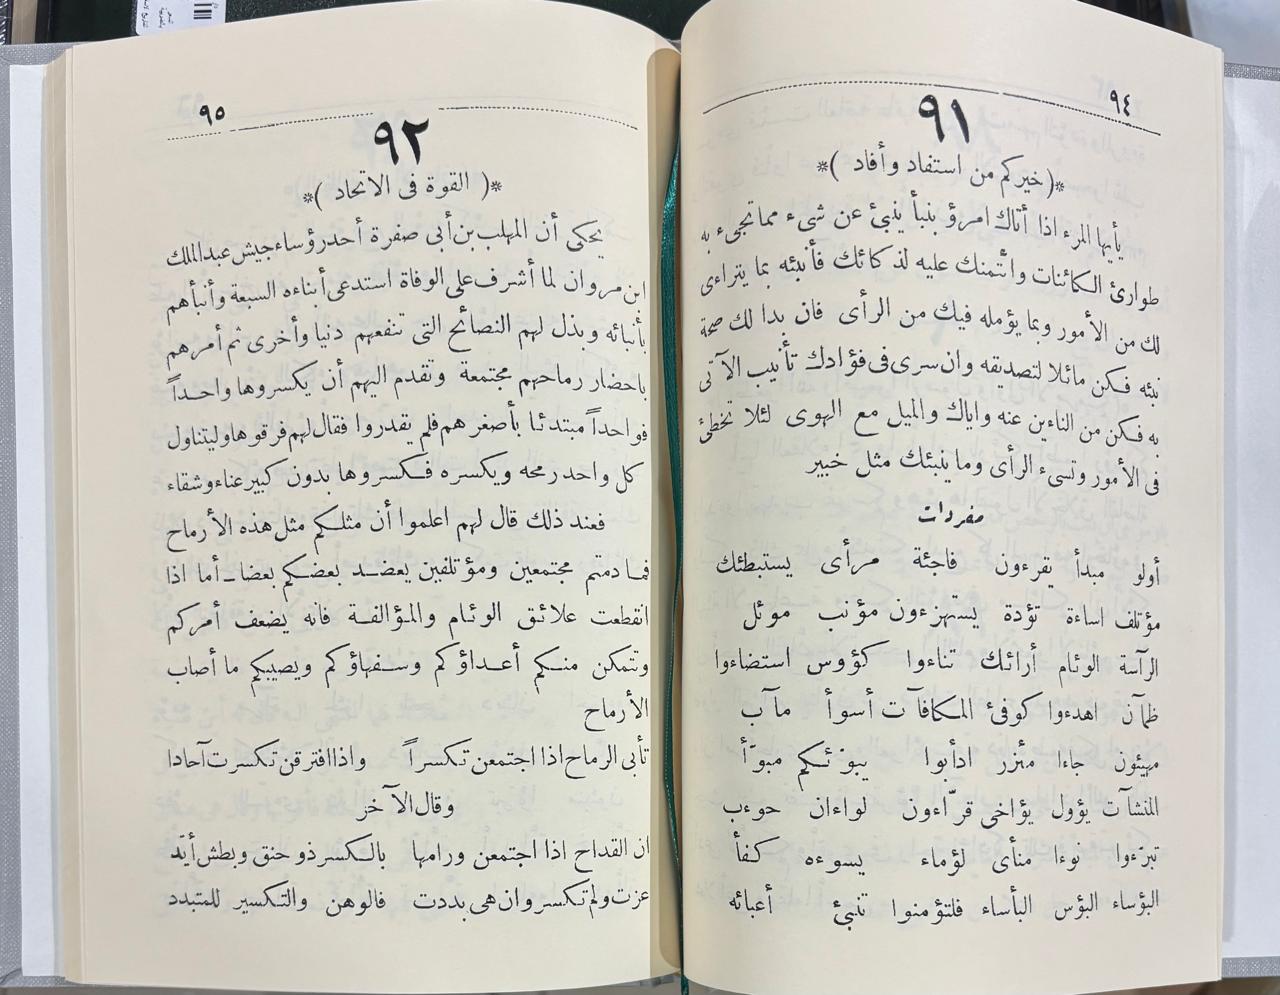 ٩٤
٩١
*( خيركم من استفاد وأفاد )*
يأيها المرء اذا أتاك امرؤ بنبأ ينبئ عن شىء مما تجىء به
طوارئ الكائنات وائتمنك عليه لذ كائك فأنبئه بما يتراءى
لك من الأمور وبما يؤمله فيك من الرأى فان بدا لك صحة
نبئه فكن مائلا لتصديقه وان سرى فى فؤادك تأنيب الآتى
به فكن من النائين عنه واياك والميل مع الهوى لئلا تخطئ
فى الأمور وتسىء الرأى وما ينبئك مثل خبير
مفردات
أولو مبدأ يقرءون فاجئة مرأى يستبطئك
مؤتلف اساءة تؤدة يستهزءون مؤنب موئل
الرآسة الوئام أرائك تناءوا كؤوس استضاءوا
ظمآن اهدءوا كوفئ المكافآت أسوأ مآب
مهيئون جاءا مئزر ادأبوا يبوّئكم مبوّأ
المنشآت يؤول يؤاخى قرّاءون لواءان حوءب
تبرّءوا نوءا منأى لؤماء يسوءه كفأ
البؤساء البؤس البأساء فلتؤمنوا تنبئ أعبائه
٩٥
٩٢
*( القوة فى الاتحاد )*
يحكى أن المهلب بن أبى صفرة أحد رؤساء جيش عبد الملك
ابن مروان لما أشرف على الوفاة استدعى أبناءه السبعة وأنبأهم
بأنبائه وبذل لهم النصائح التى تنفعهم دنيا وأخرى ثم أمرهم
باحضار رماحهم مجتمعة وتقدم اليهم أن يكسروها واحداً
فواحداً مبتدئا بأصغرهم فلم يقدروا فقال لهم فرقوها وليتناول
كل واحد رمحه ويكسره فكسروها بدون كبير عناء وشقاء
فعند ذلك قال لهم اعلموا أن مثلكم مثل هذه الأرماح
فما دمتم مجتمعين ومؤتلفين يعضد بعضكم بعضا ـ أما اذا
انقطعت علائق الوئام والمؤالفة فانه يضعف أمركم
وتتمكن منكم أعداؤكم وسفهاؤكم ويصيبكم ما أصاب
الأرماح
تأبى الرماح اذا اجتمعن تكسراً واذا افترقن تكسرت آحادا
وقال الآخر
ان القداح اذا اجتمعن ورامها بالكسر ذو حنق وبطش أيّد
عزت ولم تكسر وان هى بددت فالوهن والتكسير للمتبدد